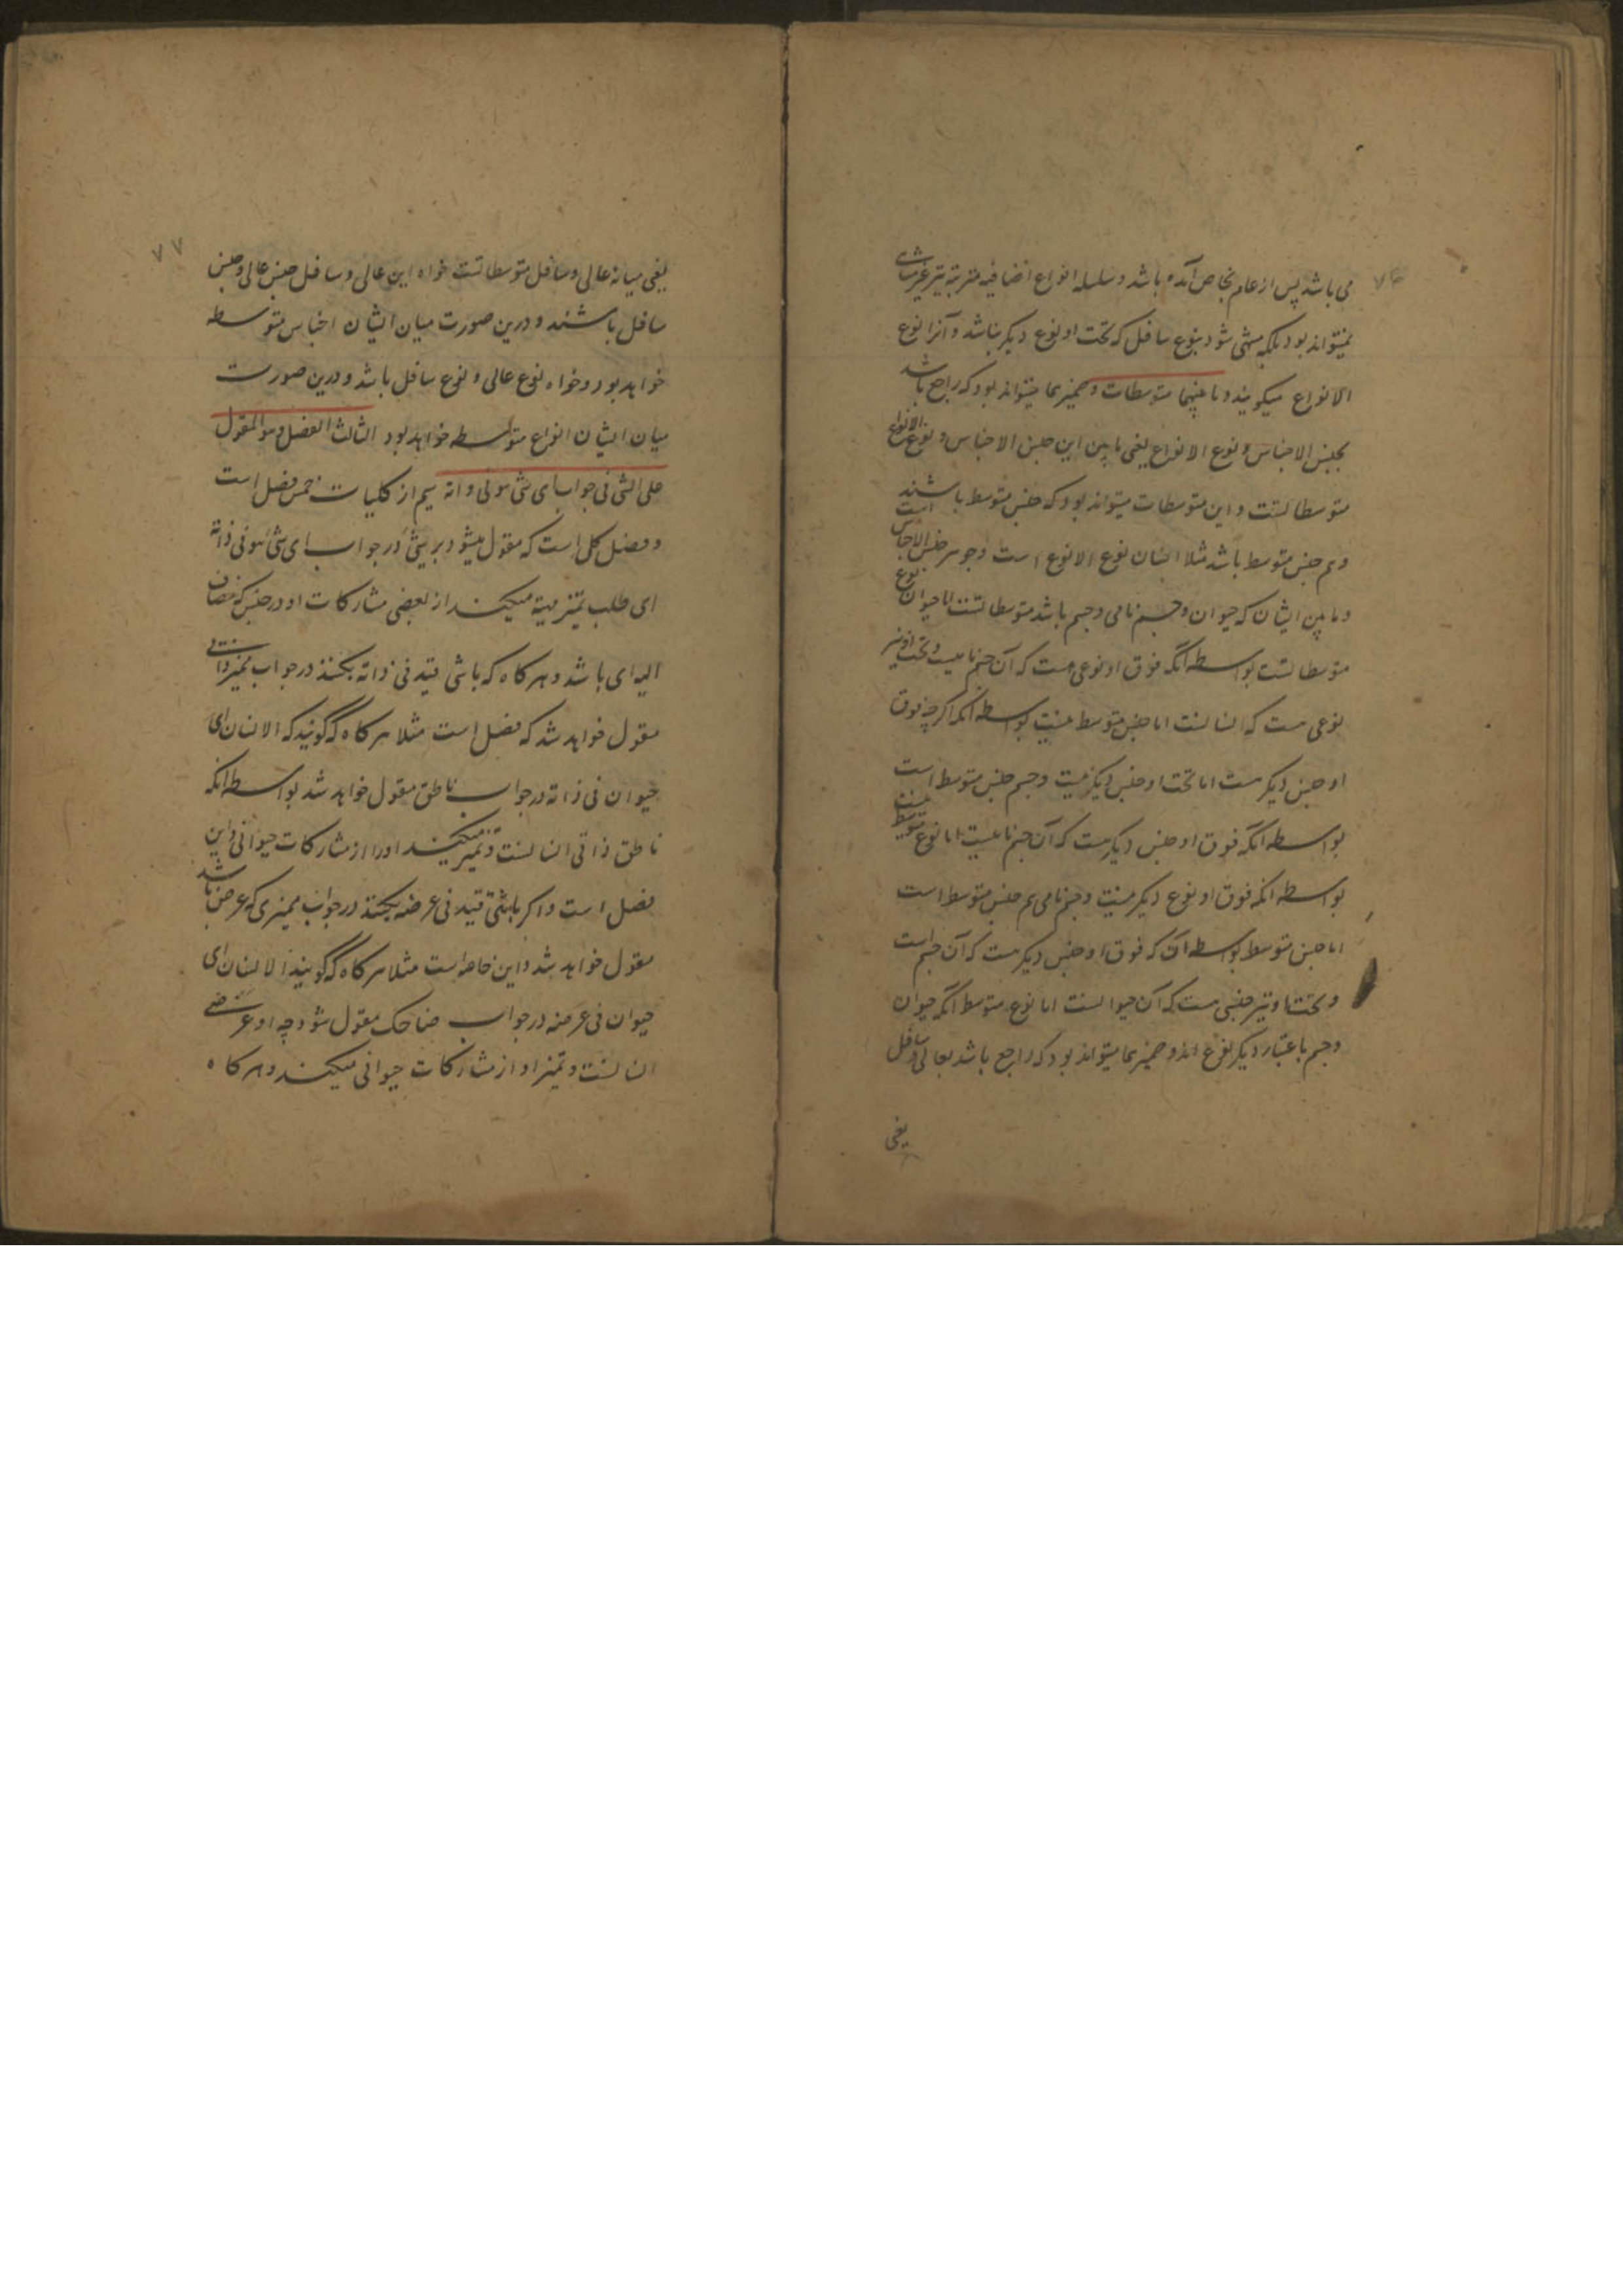 ۷۶
می باشد پس از عام بخاص آمده باشد و سلسله انواع اضافیه مترتبه نیز غیر متناهی
نمیتواند بود بلکه منتهی شود بنوع سافل که تحت او نوع دیگر نباشد و آنرا نوع
الانواع میگویند و ما بینهما متوسطات و ضمیر هما میتواند بود که راجع باشد
بجنس الاجناس و نوع الانواع یعنی ما بین این جنس الاجناس و نوع الانواع
متوسطاتست و این متوسطات میتواند بود که جنس متوسط باشند
و هم جنس متوسط باشد مثلا انسان نوع الانوع است و جوهر جنس الاجناس است
و ما بین ایشان که حیوان و جسم نامی و جسم باشد متوسطاتست اما حیوان نوع
متوسطاتست بواسطه آنکه فوق او نوعی هست که آن جسم نامیست و تحت او نیز
نوعی هست که انسانست اما جنس متوسط نیست بواسطه آنکه اگرچه فوق
او جنس دیگر هست اما تحت او جنس دیگر نیست و جسم جنس متوسط است
بواسطه آنکه فوق او جنس دیگر هست که آن جسم نامیست اما نوع متوسط نیست
بواسطه آنکه فوق او نوع دیگر نیست و جسم نامی هم جنس متوسط است
اما جنس متوسط بواسطه آن که فوق او جنس دیگر هست که آن جسم است
و تحت او نیز جنسی هست که آن حیوانست اما نوع متوسط آنکه حیوان
و جسم باعتبار دیگر نوع اند و ضمیر هما میتواند بود که راجع باشد بعالی و سافل
یعنی
۷۷
یعنی میانه عالی و سافل متوسطاتست خواه این عالی و سافل جنس عالی و جنس
سافل باشند و درین صورت میان ایشان اجناس متوسطه
خواهد بود و خواه نوع عالی و نوع سافل باشد و درین صورت
میان ایشان انواع متوسطه خواهد بود الثالث الفصل و هو المقول
علی الشی فی جواب ای شی هو فی ذاته سیم از کلیات خمس فصل است
و فصل کلی است که مقول میشود بر شئ در جواب ای شئ هو فی ذاته
ای طلب تمیز میکند از بعضی مشارکات او در جنس که مضاف
الیه ای باشد و هرگاه که باشی قید فی ذاته بکنند در جواب ممیز ذاتی
مقول خواهد شد که فصل است مثلا هرگاه که گویند که الانسان ای
حیوان فی ذاته در جواب ناطق مقول خواهد شد بواسطه آنکه
ناطق ذاتی انسانست و تمیز میکند او را از مشارکات حیوانی و این
فصل است و اگر باشی قید فی عرضه بکنند در جواب ممیزی که عرض باشد
مقول خواهد شد و این خاصه است مثلا هرگاه که گویند الانسان ای
حیوان فی عرضه در جواب ضاحک مقول شود چه او عرضی
انسانست و تمیز او از مشارکات حیوانی میکند و هرگاه